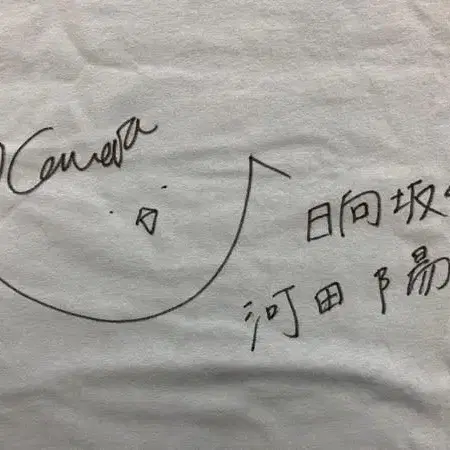 Camera
日向坂
河田陽